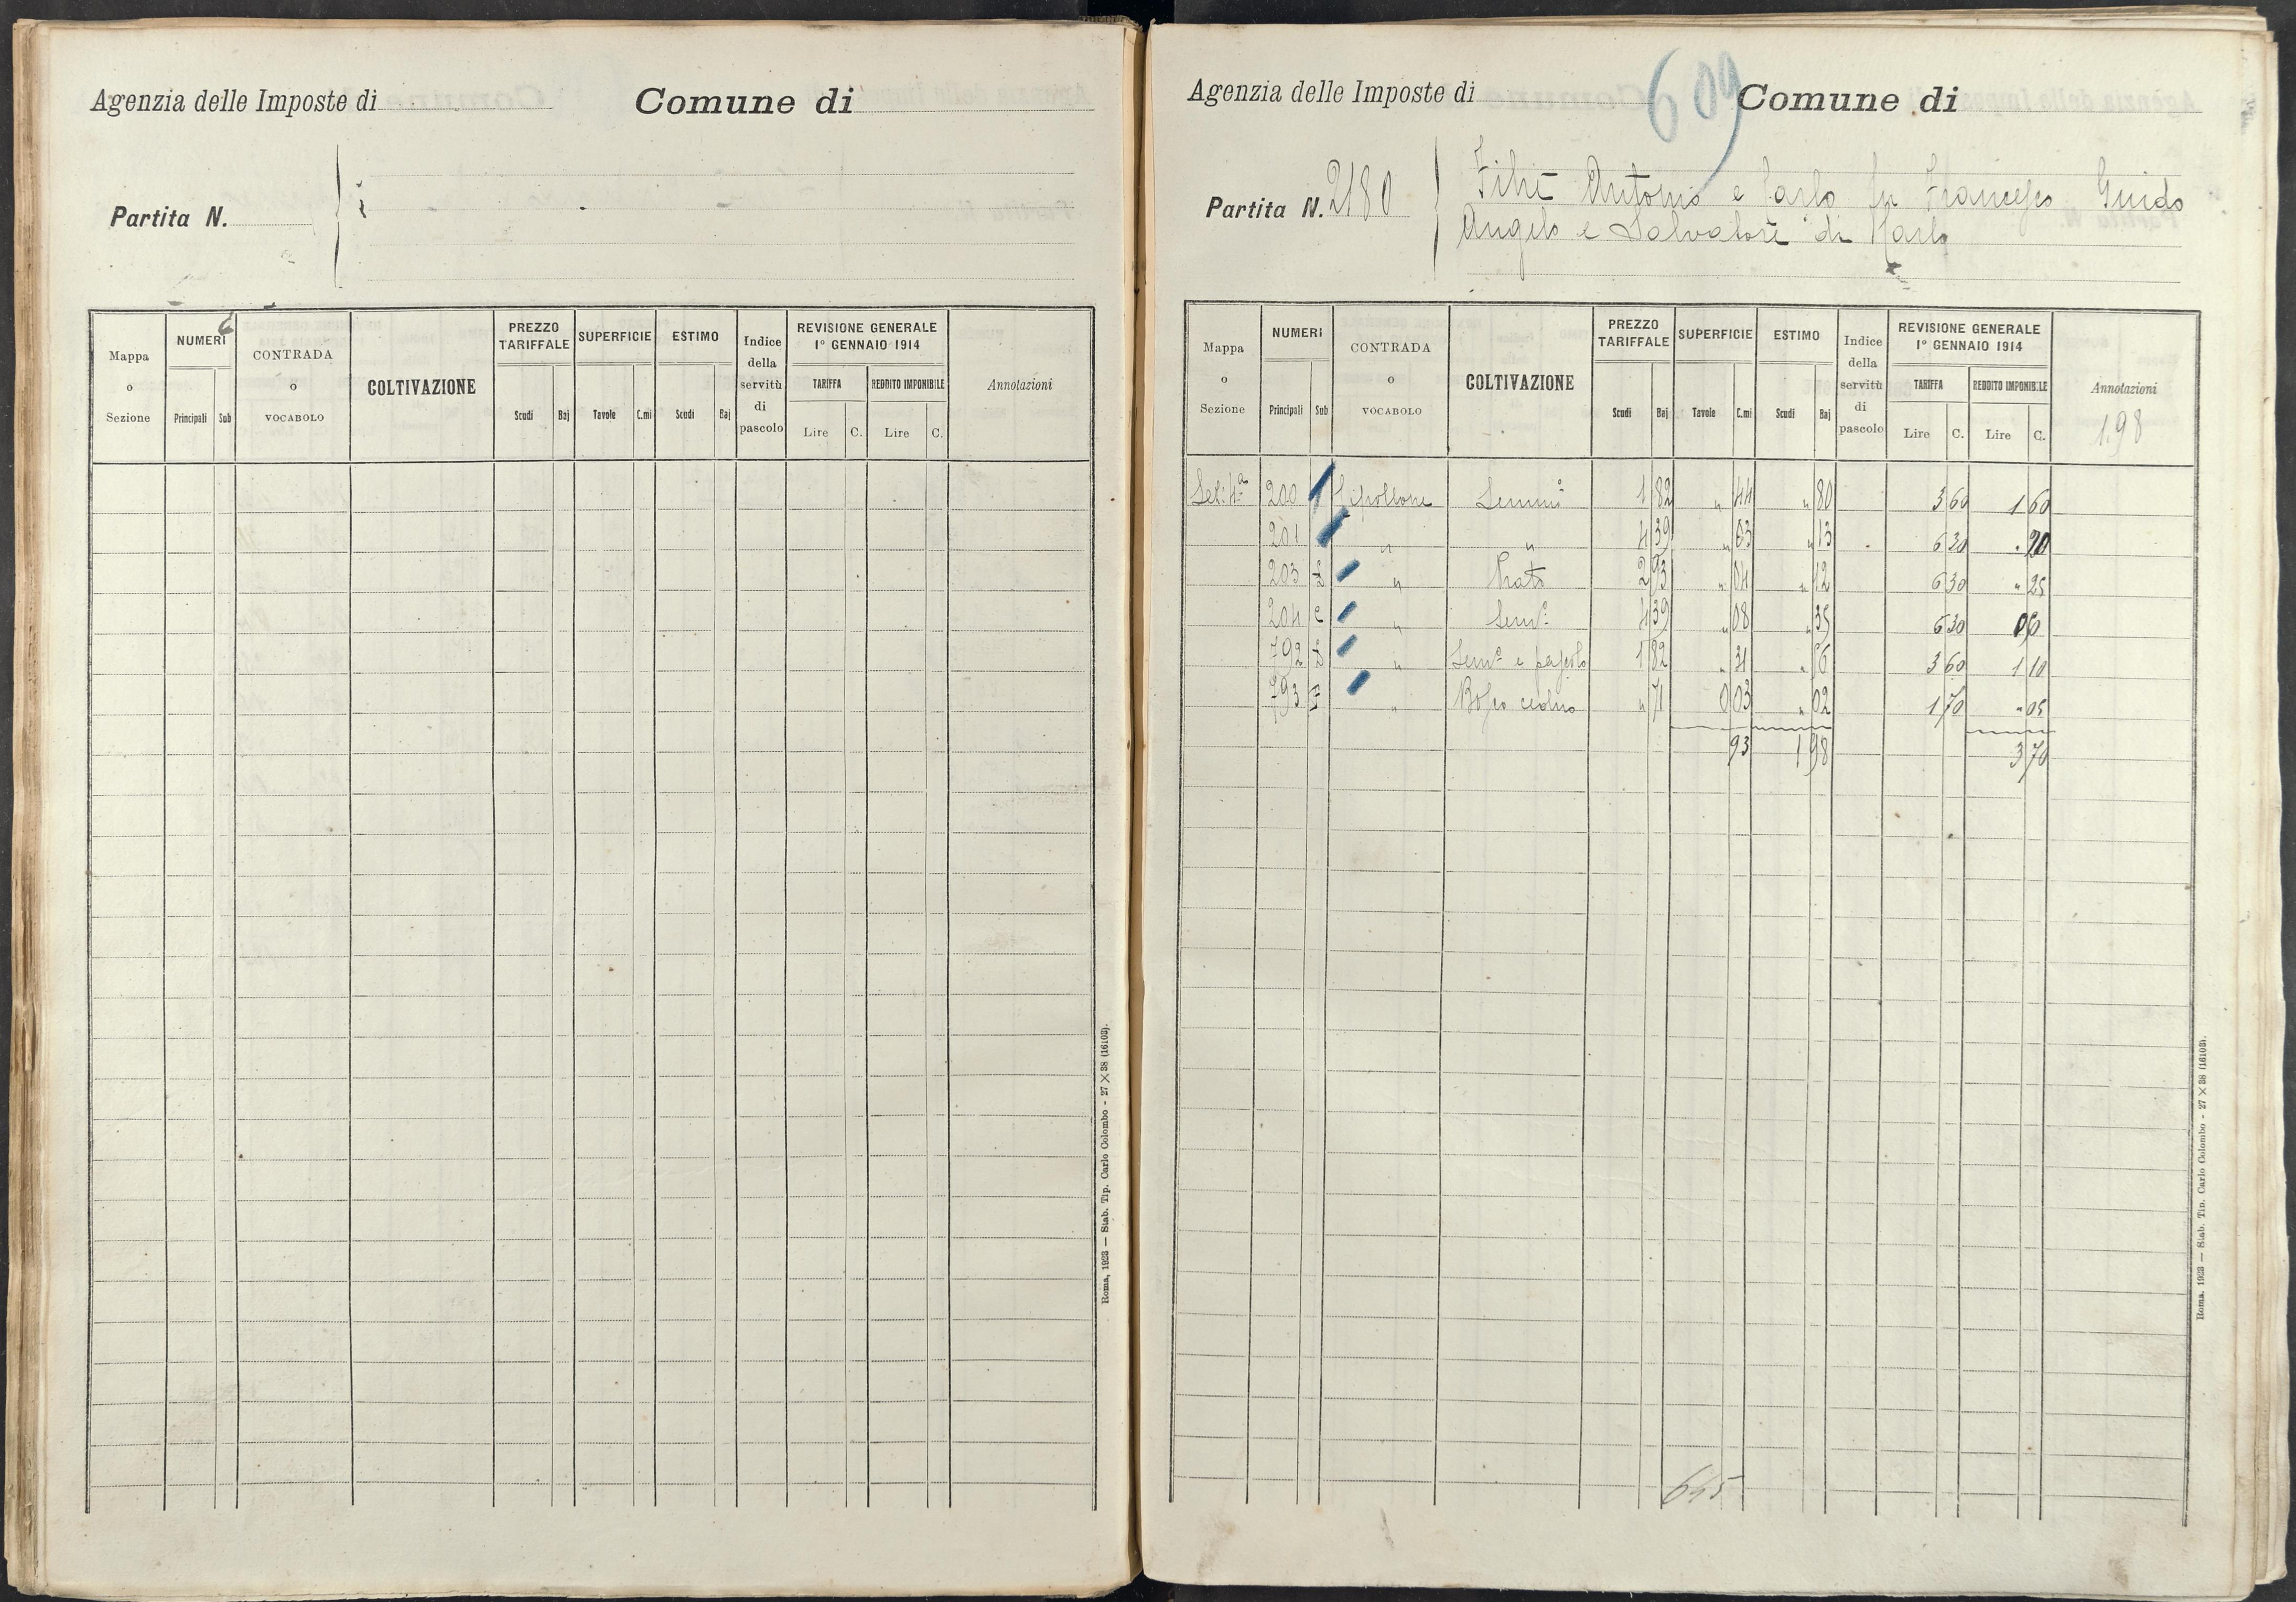 Agenzia delle Imposte di
Comune di
Partita N.
Mappa o Sezione
NUMERI
Principali
Sub
CONTRADA o VOCABOLO
COLTIVAZIONE
PREZZO TARIFFALE
Scudi
Baj
SUPERFICIE
Tavole
C.mi
ESTIMO
Scudi
Baj
Indice della servitù di pascolo
REVISIONE GENERALE
1° GENNAIO 1914
TARIFFA
REDDITO IMPONIBILE
Lire
C.
Lire
C.
Annotazioni
Roma, 1923 — Stab. Tip. Carlo Colombo - 27 X 38 (16103).
609
Agenzia delle Imposte di
Comune di
Partita N. 2180
Antonio e Carlo fu Francesco Guido
Angelo e Salvatore di Carlo
Mappa o Sezione
NUMERI
Principali
Sub
CONTRADA o VOCABOLO
COLTIVAZIONE
PREZZO TARIFFALE
Scudi
Baj
SUPERFICIE
Tavole
C.mi
ESTIMO
Scudi
Baj
Indice della servitù di pascolo
REVISIONE GENERALE
1° GENNAIO 1914
TARIFFA
REDDITO IMPONIBILE
Lire
C.
Lire
C.
Annotazioni
1.98
Sez: 4ª 200 1 82 " 44 " 80 3 60 1 60
201 " " 4 39 " 03 " 13 6 30 " 20
203 " Prato 2 93 " 04 " 12 6 30 " 25
204 c " Semo 4 39 " 08 " 35 6 30
792 " Semo e pascolo 1 82 " 31 " 56 3 60 1 10
793 " Bosco ceduo " 71 0 03 " 02 1 70 " 05
93 1 98 3 70
645
Roma, 1923 — Stab. Tip. Carlo Colombo - 27 X 38 (16103).